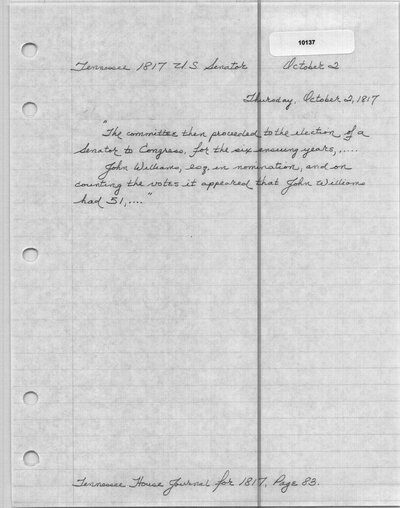 10137
Tennessee 1817 U.S. Senator October 2
Thursday, October 2, 1817
"The committee then proceeded to the election of a
Senator to Congress, for the six ensuing years, .....
John Williams, esq. in nomination, and on
counting the votes it appeared that John Williams
had 51, ...."
Tennessee House Journal for 1817. Page 83.